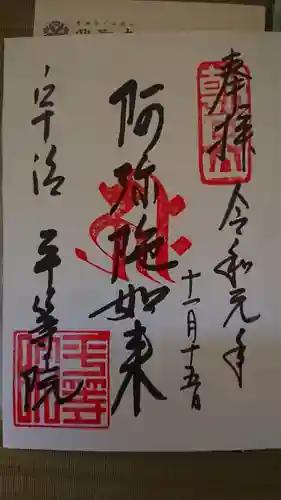 奉拝
令和元年
十一月十五日
阿弥陀如来
宇治 平等院